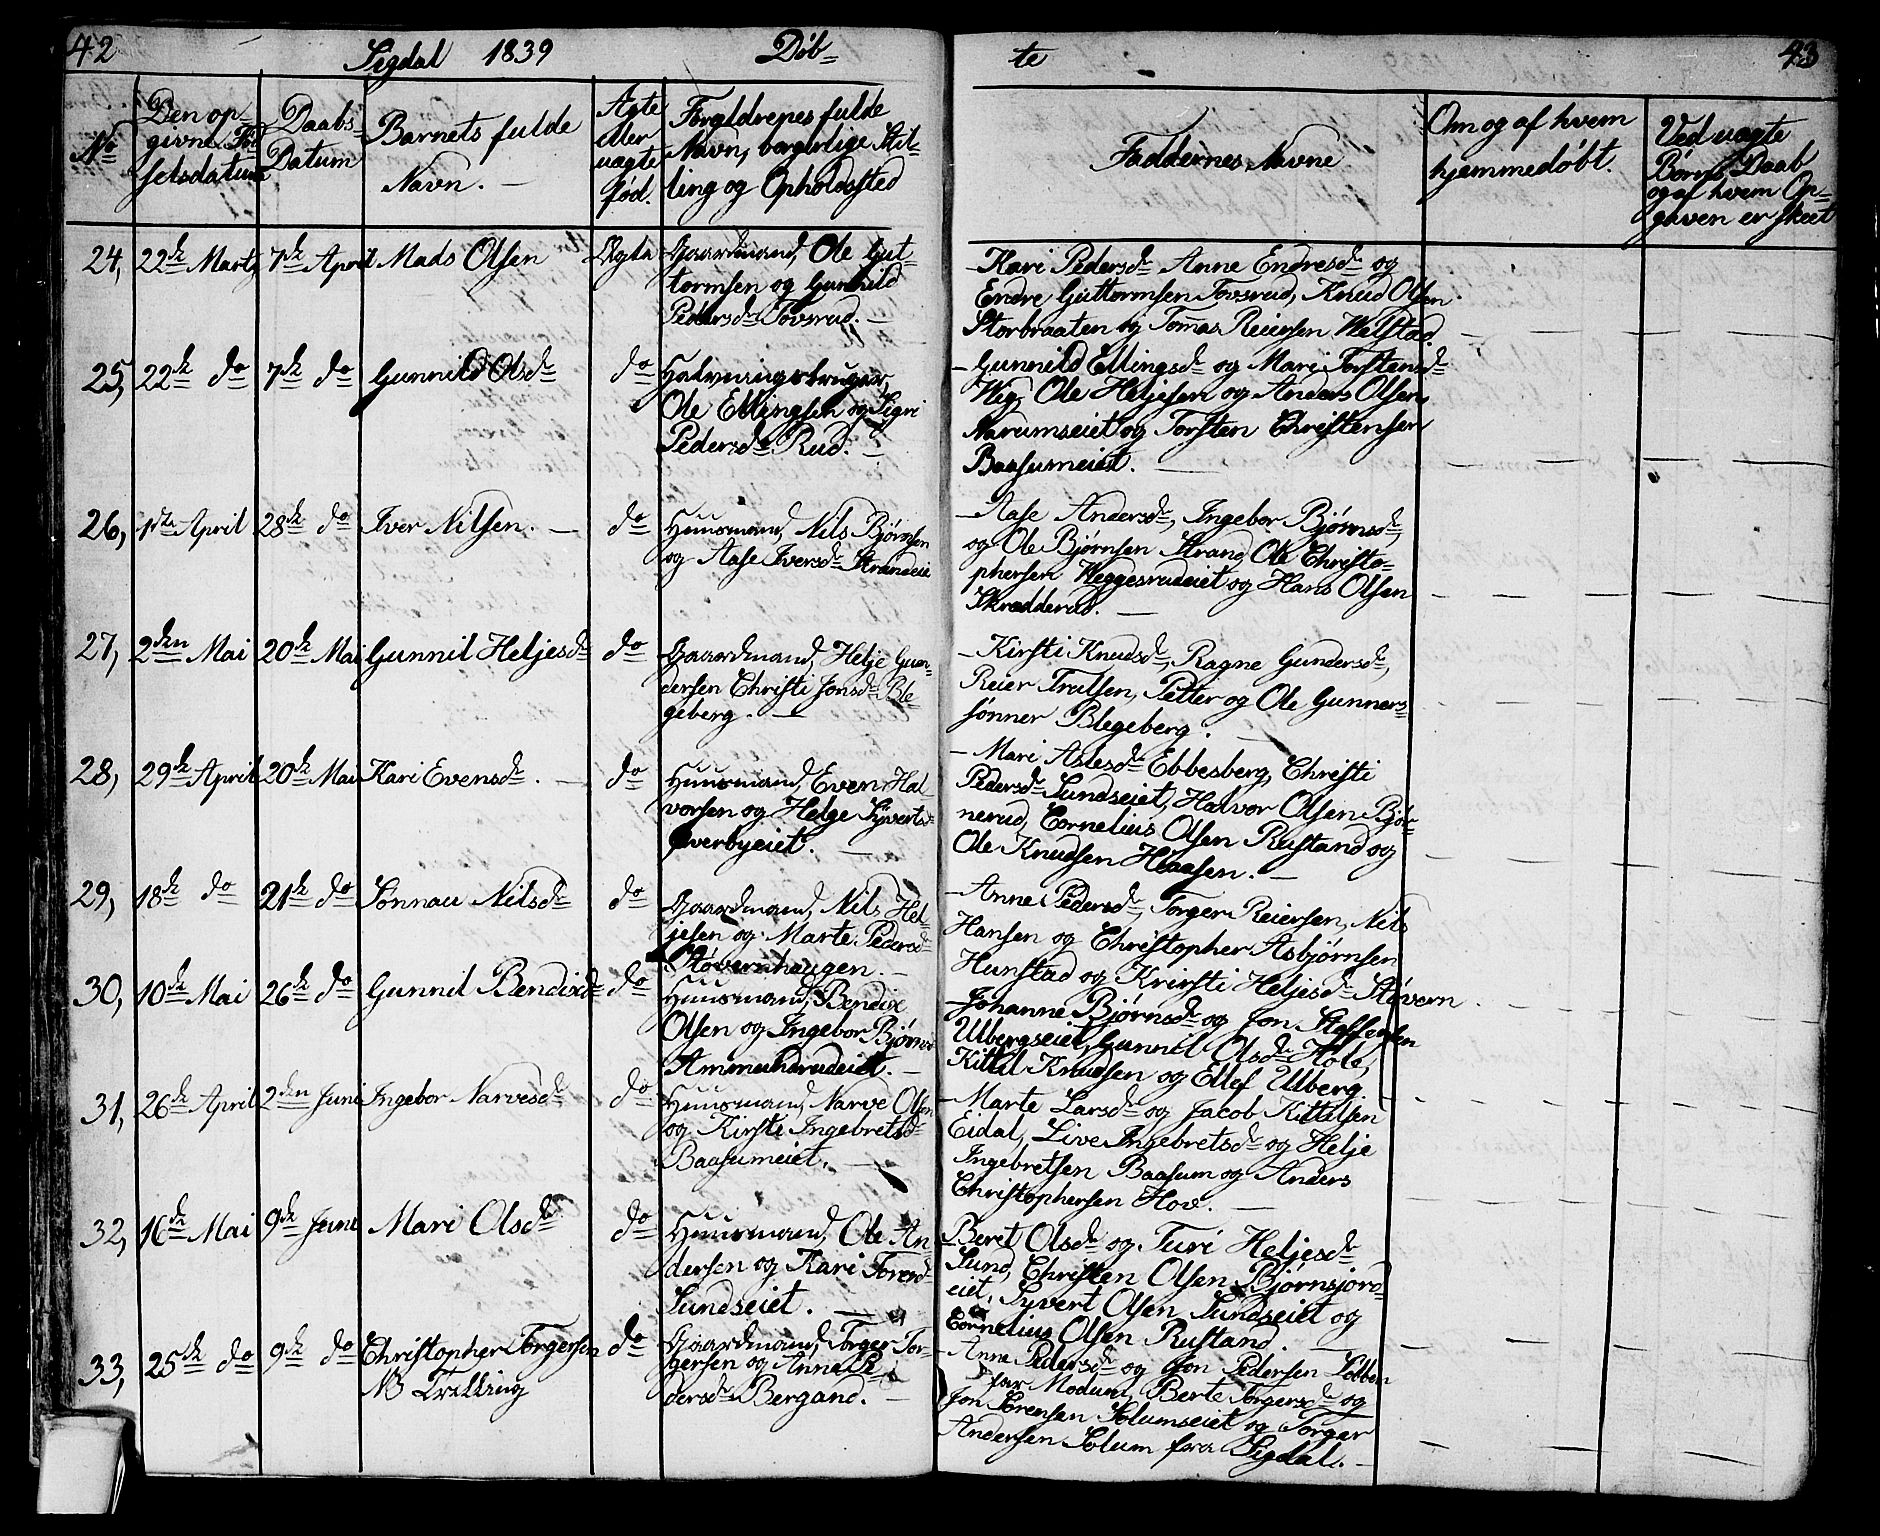 42 Sigdal 1839 Döb-
te 43
No
Den op-
givne Fød
selsdatum
Daabs-
Datum
Barnets fulde
Navn. —
Ægte
eller
uægte
fød.
Forældrenes fulde
Navn, borgerlige Stil-
ling og Opholdssted
Faddernes Navne
Om og af hvem
hjemmedøbt.
Ved uægte
Børns Daab
og af hvem Op-
gaven er skeet
24, 22de Marts 7de April Mads Olsen Ægte
Gaardmand, Ole Gut-
tormsen og Gunnild
Pedersdr Tovsrud. —
— Kari Pedersdr Anne Endresdr og
Endre Guttormsen Tovsrud, Knud Olsen
Storbraaten og Tomas Reiersen Welstad.
25, 22de do 7de do Gunnild Olsdr do
Halvningsbruger,
Ole Ellingsen og Sigri
Pedersdr Rud. —
— Gunnild Ellingsdr og Mari Torstensdr
Weg, Ole Heljesen og Anders Olsen,
Narumseiet og Torsten Christensen
Baasumeiet. —
26, 1ste April 28de do Iver Nilsen. — do
Huusmand, Nils Bjørnsen
og Aase Iversdr Strandeie
— Aase Andersdr, Ingebor Bjørnsdr,
og Ole Bjørnsen Strand, Ole Christo-
phersen Weggesrudeiet og Hans Olsen
Skredderud. —
27, 2den Mai 20de Mai Gunnil Heljesdr do
Gaardmand, Helje Gun-
dersen Christi Jonsdr Ble-
geberg. —
— Kirsti Knudsdr, Ragne Gundersdr,
Reier Trulsen, Petter og Ole Gunners-
sønner Blegeberg. —
28, 29de April 20de Mai Kari Evensdr. — do
Huusmand, Even Hal
vorsen og Helge Syvertsdr
Øverbyeiet. —
— Mari Aslesdr Ebbesberg, Christi
Pedersdr Sundseiet, Halvor Olsen Bjør-
nerud, Cornelius Olsen Rustand og
Ole Knudsen Haasen. —
29, 18de do 21de do Sønnau Nilsdr do
Gaardmand, Nils Hel-
jesen og Marte Pedersdr
Støvernhaugen. —
— Anne Pedersdr, Torger Reiersen, Nils
Hansen og Christopher Asbjørnsen
Hunstad og Krirsti Heljesdr Støvern.
30, 10de Mai 26de do Gunnil Bendixdr do
Huusmand, Bendix
Olsen og Ingebor Bjørnsdr
Ammundrudeiet. —
— Johanne Bjørnsdr og Jon Steffensen
Ulbergseiet, Gunnil Olsdr Hole,
Kittil Knudsen og Ellef Ulberg.
31, 26de April 2den Juni Ingebor Narvesdr do
Huusmand, Narve Olsen
og Kirsti Ingebretsdr
Baasumeiet. —
— Marte Larsdr og Jacob Kittilsen
Eidal, Live Ingebretsdr og Helje
Ingebretsen Baasum og Anders
Christophersen Hov. —
32, 16de Mai 9de Juni Mari Olsdr do
Huusmand, Ole An-
dersen og Kari Toresdr
Sundseiet. —
— Beret Olsdr og Turi Heljesdr
Sund, Christen Olsen Bjørnsjord-
eiet, Syvert Olsen Sundseiet og
Cornelius Olsen Rustand. —
33, 25de do 9de do Christopher Torgersen do
NB Trilling
Gaardmand, Torger Tor-
gersen og Anne Pe-
dersdr Bergand. —
— Anne Pedersdr og Jon Pedersen Lobben
fra Modum, Berte Torgersdr og
Jon Sørensen Solumseiet og Torger
Andersen Solum fra Sigdal. —